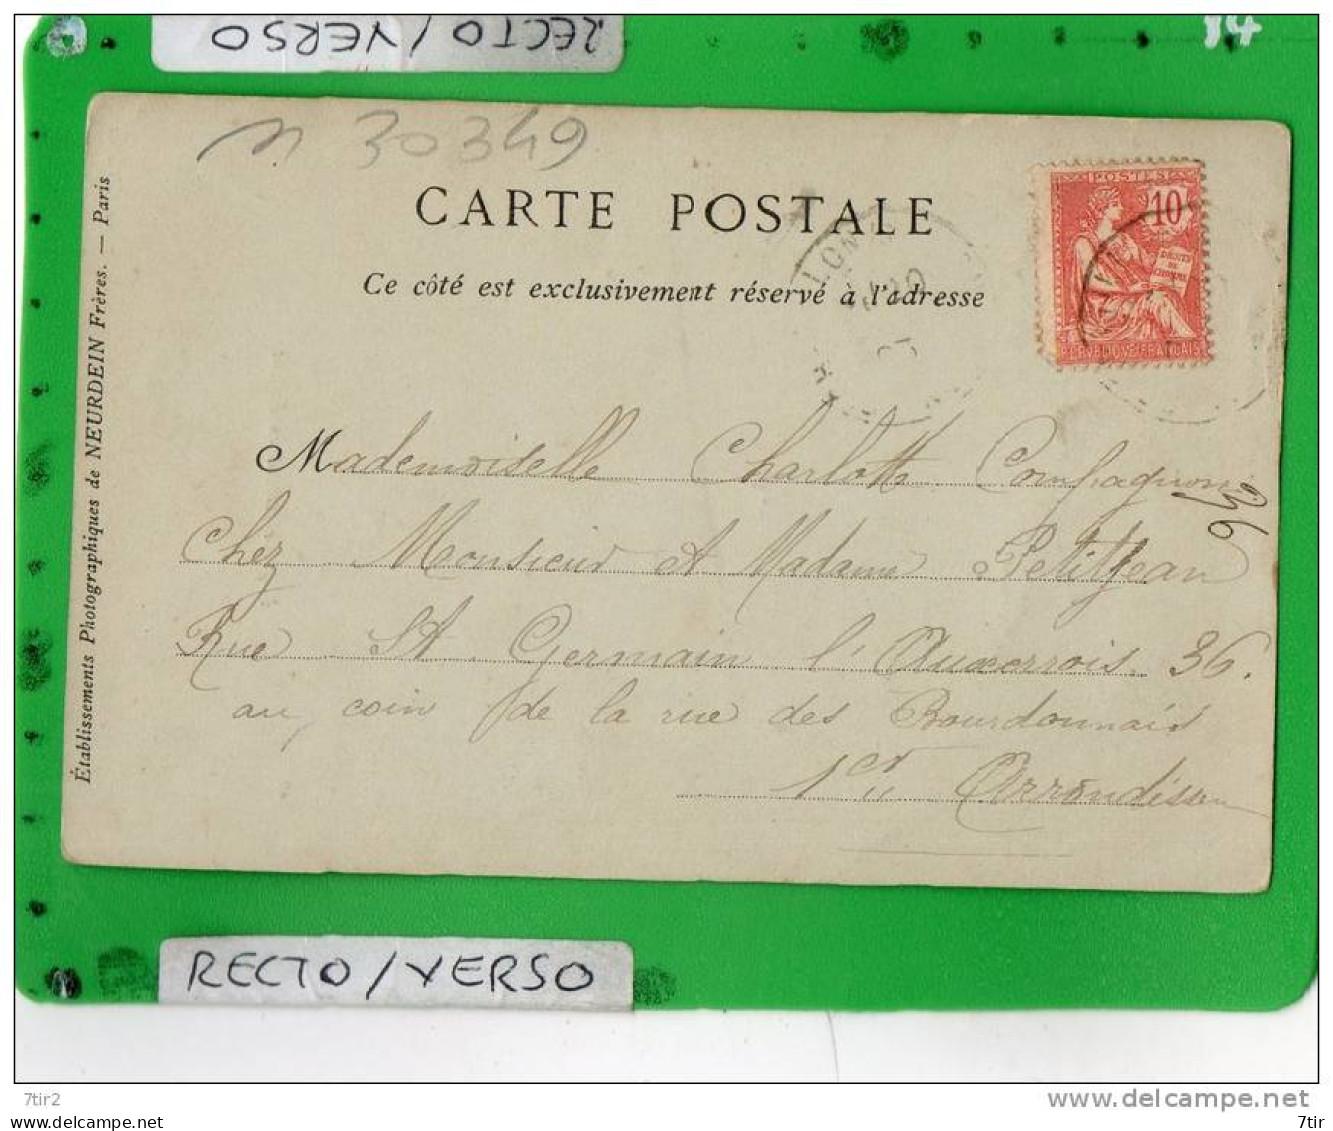 RECTO/VERSO
14
n 30349
CARTE POSTALE
Ce côté est exclusivement réservé à l'adresse
POSTES
10
DROITS DE L'HOMME
Établissements Photographiques de NEURDEIN Frères. — Paris
Mademoiselle Charlotte Compagnon
Chéz Monsieur et Madame Petitjean
36
Rue St Germain l'Auxerrois. 36.
au coin de la rue des Bourdonnais
1er Arrondissem
RECTO/VERSO
delcampe.net
7tir2
vente-achat-numismatique.com
7tir